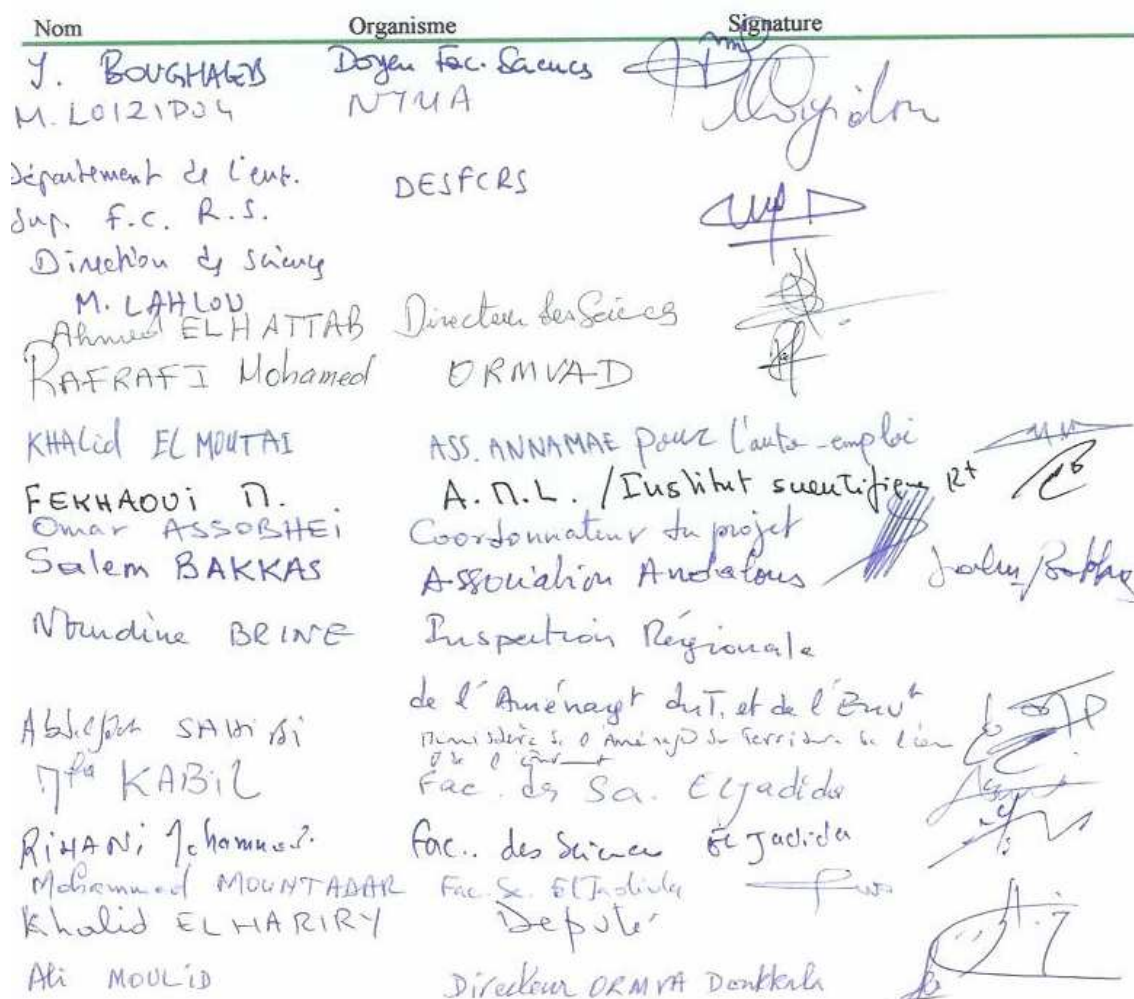 Nom Organisme Signature
J. BOUGHALEB Doyen Fac. Sciences
M. LOIZIDOU NTUA
Département de l'ens. DESFCRS
Sup. F.C. R.S.
Direction des Sciences
M. LAHLOU
Ahmed ELHATTAB Directeur des Sciences
RAFRAFI Mohamed ORMVAD
KHALid EL MOUTAI ASS. ANNAMAE pour l'auto-emploi
FEKHAOUi M. A.M.L. / Institut scientifique Rt
Omar ASSOBHEi Coordonnateur du projet
Salem BAKKAS Association Andalous
Nourdine BRINE Inspection Régionale
de l'Aménagt du T. et de l'Envt
SAHIBI
Mfa KABiL Fac. des Sc. El Jadida
RiHANi Mohammed. Fac. des Sciences El Jadida
Mohammed MOUNTADAR Fac. Sc. El Jadida
Khalid EL HARIRY Député
Ali MOULiD Directeur ORMVA Doukkala